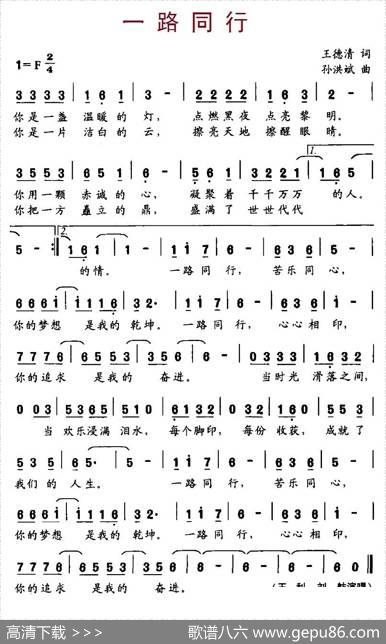 一路同行
1=F 2/4
王德清 词
孙洪斌 曲
3333 | 161 | 3 - | 2222 | 163 | 3 - |
你是一盏 温暖的 灯, 点燃黑夜 点亮黎 明。
你是一片 洁白的 云, 擦亮天地 擦醒眼 睛。
3553 | 651 | 6 - | 561 | 3221 | 165 |
你用一颗 赤诚的 心, 凝聚着 千千万万 的人。
你把一方 矗立的 鼎, 盛满了 世世代代
5 - :‖ 161 | 1 - | 1 - | 117 | 6 - | 636 | 5 - |
的情。 一路同 行, 苦乐同 心,
6661 | 1116 | 32· | 117 | 6 - | 636 | 5 - |
你的梦想 是我的 乾坤。 一路同 行, 心心相 印,
7776 | 6553 | 356 | 6 - | 0333 | 1632 |
你的追求 是我的 奋进。 当时光 滑落之间,
003 | 5653 | 2510 | 6132 | 032 | 160 | 553 |
当 欢乐浸满 泪水, 每个脚印, 每份 收获, 成就了
535 | 65· | 5 - | 117 | 6 - | 636 | 5 - |
我们的 人生。 一路同 行, 苦乐同 心,
6661 | 1116 | 32· | 117 | 6 - | 636 | 5 - |
你的梦想 是我的 乾坤。 一路同 行, 心心相 印,
7776 | 6553 | 356 | 6 - | 6 - | 6 - | 60 ‖
你的追求 是我的 奋进。
高清下载 >>> 歌谱八六 www.gepu86.com